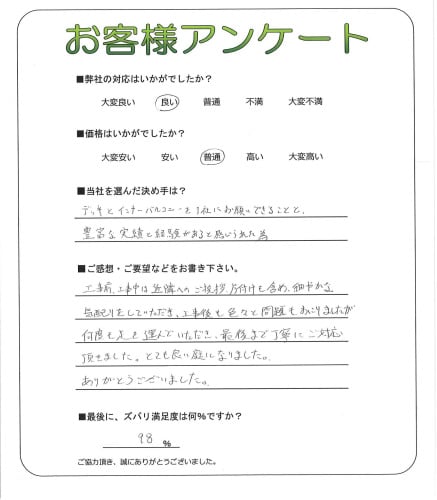 お客様アンケート
■弊社の対応はいかがでしたか？
大変良い 良い 普通 不満 大変不満
■価格はいかがでしたか？
大変安い 安い 普通 高い 大変高い
■当社を選んだ決め手は？
デッキとインナーバルコニーを1社にお願いできることと、
豊富な実績と経験があると感じられた為
■ご感想・ご要望などをお書き下さい。
工事前、工事中は近隣へのご挨拶、片付けも含め、細やかな
気配りをしていただき、工事後も色々と問題もおこりましたが
何度も足を運んでいただき、最後まで丁寧にご対応
頂きました。とても良い庭になりました。
ありがとうございました。
■最後に、ズバリ満足度は何%ですか？
98 %
ご協力頂き、誠にありがとうございました。